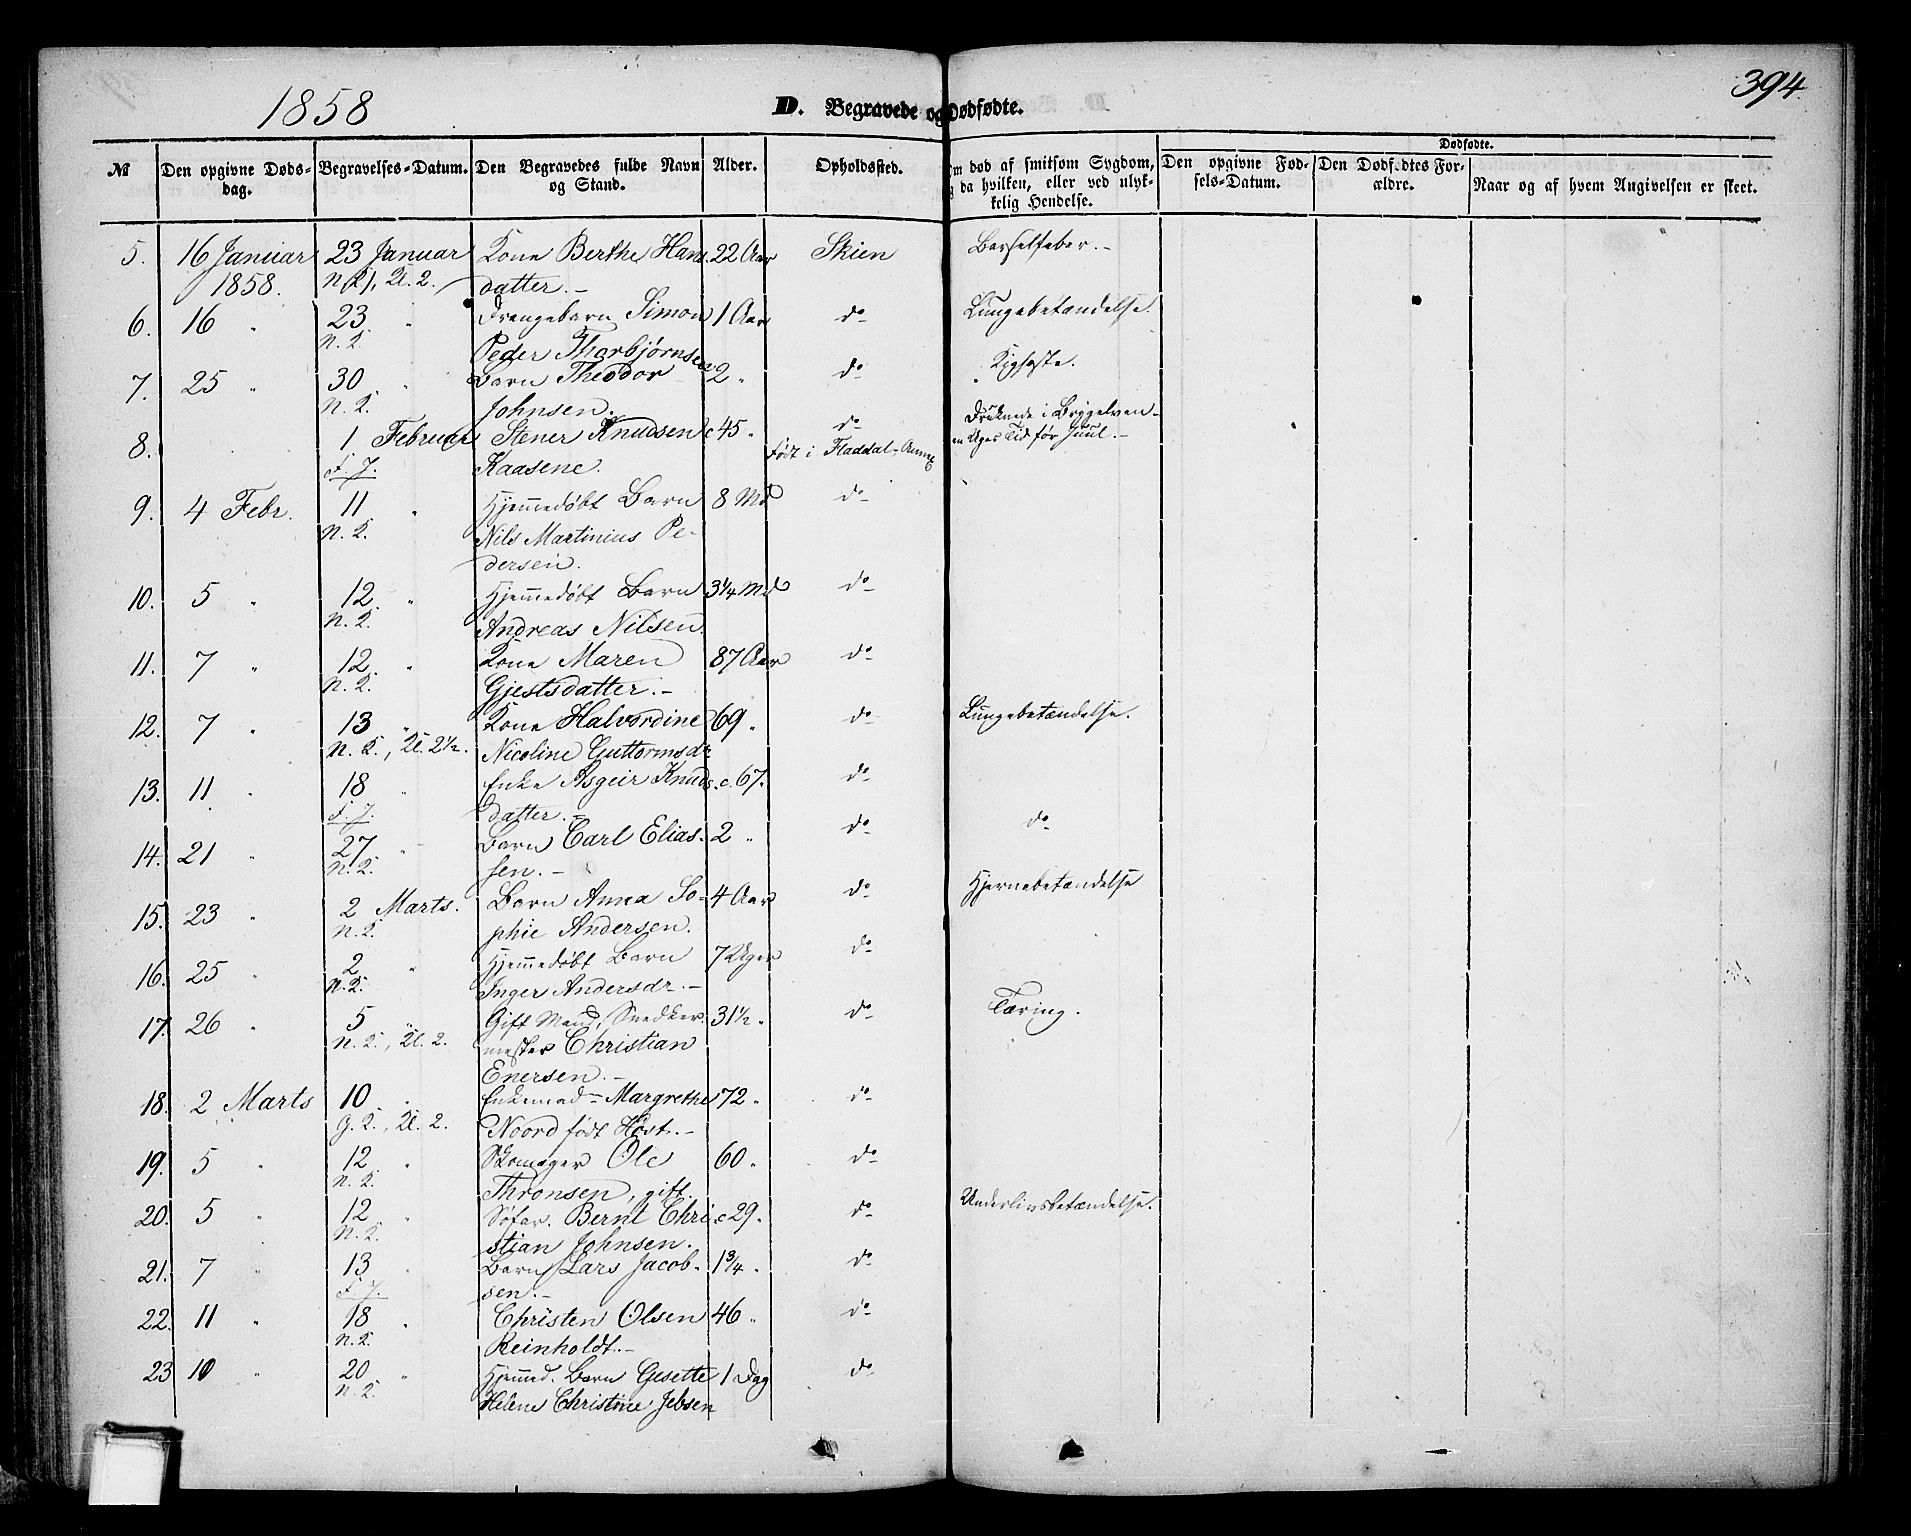 1858
D. Begravede og Dødfødte.
394
№
Den opgivne Døds-
dag.
Begravelses-Datum.
Den Begravedes fulde Navn
og Stand.
Alder.
Opholdssted.
Om død af smitsom Sygdom,
og da hvilken, eller ved ulyk-
kelig Hendelse.
Dødfødte.
Den opgivne Fød-
sels-Datum.
Den Dødfødtes For-
ældre.
Naar og af hvem Angivelsen er skeet.
5. 16 Januar 23 Januar Kone Berthe Hans 22 Aar Skien Barselfeber.-
1858. Kl. 2. datter.-
6. 16 " 23 " Drengebarn Simon 1 Aar do Lungebetændelse.
N. K. Peder Thorbjørnsen
7. 25 " 30 " Barn Theodor 2 " do Kighoste.
N. K. Johnsen.
8. 1 Februar Stener Knudsen c 45 " do Druknede i Bryggelven
F. J. Kaasene. født i Flaadal-Annex en Uges Tid før Juul.-
9. 4 Febr. 11 " Hjemmedøbt Barn 8 Md do
N. K. Nils Martinius Pe-
dersen.
10. 5 " 12 " Hjemmedøbt Barn 3¼ Md do
N. K. Andreas Nilsen.
11. 7 " 12 " Kone Maren 87 Aar do
N. K. Gjestsdatter.-
12. 7 " 13 " Kone Halvordine 69 " do Lungebetændelse.
N. K., Kl. 2½. Nicoline Guttormsdr
13. 11 " 18 " Enke Asgeir Knuds- c. 67. do
F. J. datter.-
14. 21 " 27 " Barn Carl Elias- 2 " do do
N. K. sen.-
15. 23 " 2 Marts. Barn Anna So- 4 Aar do Hjernebetændelse
N. K. phie Andersen.
16. 25 " 2 " Hjemmedøbt Barn 7 Uger do
N. K. Inger Andersdr.-
17. 26 " 5 " Gift Mand, Snedker- 31½ " do Tæring.
N. K., Kl. 2. mester Christian
Enersen.-
18. 2 Marts 10 " Enkemad- Margrethe 72 " do
G. K., Kl. 2. Noord født Høst.-
19. 5 " 12 " Skomager Ole 60 " do
N. K. Thronsen, gift.
20. 5 " 12 " Søfar. Bernt Chri c 29. do Underlivsbetændelse.
N. K. stian Johnsen.
21. 7 " 13 " Barn Lars Jacob- 1¾ " do
F. J. sen.-
22. 11 " 18 " Christen Olsen 46 " do
N. K. Reinholdt.-
23 10 " 20 " Hjemmed. Barn Gesette 1 Dag do
N. K. Helene Christine Jebsen